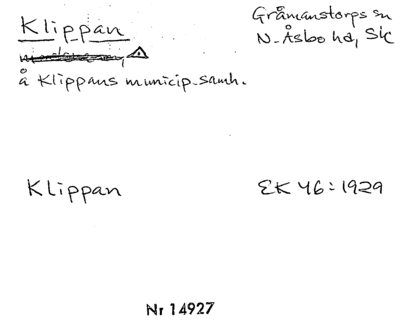 Klippan
Gråmanstorps sn
N. Åsbo hd, Sk
å Klippans municip.samh.
Klippan
EK 46:1929
Nr 14927